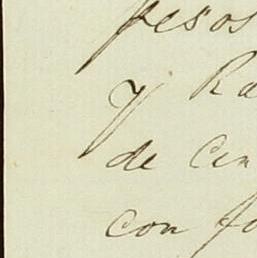 pesos
y Ra
de Cin
con fo